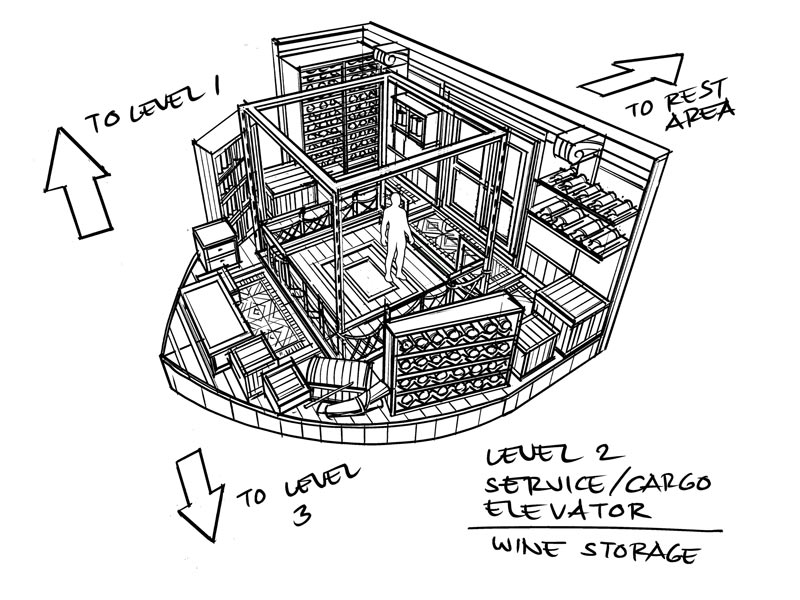 TO LEVEL 1
TO REST
AREA
TO LEVEL
3
LEVEL 2
SERVICE/CARGO
ELEVATOR
WINE STORAGE